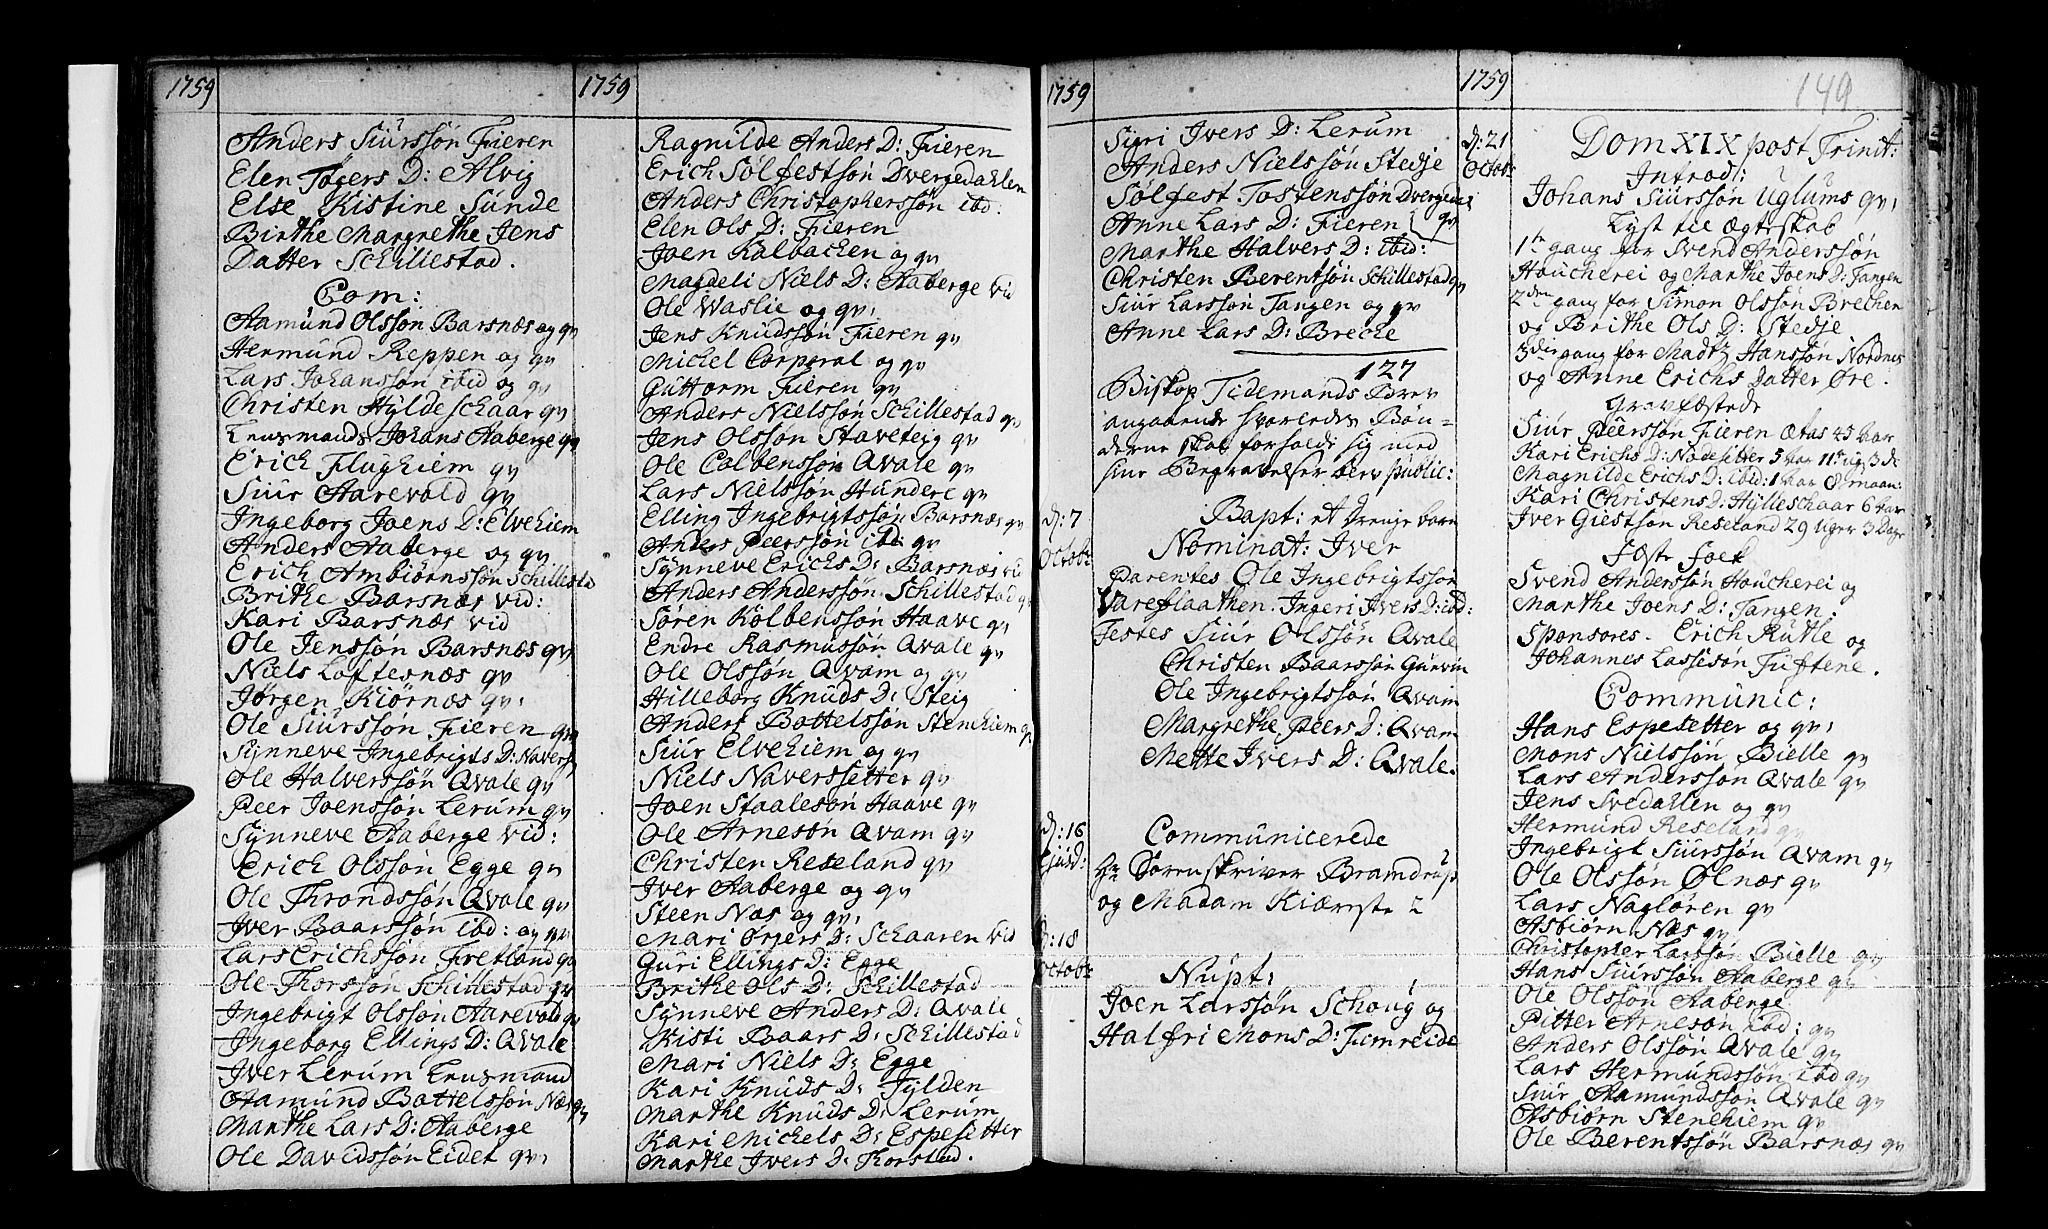 1759
Anders Siurssøn Fieren
Elen Tøgers D: Alvig
Else Kistine Sunde
Birthe Margrethe Jens
Datter Schillestad.
Com:
Aamund Olssøn Barsnæs og qv
Hermund Reppen og qv
Lars Johanssøn ibid og qv
Christen Hyldeschaar qv
Lensmands Johans Aaberge qv
Erich Flughiem qv
Siur Aarevold qv
Ingeborg Joens D: Elvehiem
Anders Aaberge og qv
Erich Ambiørnssøn Schillestd
Brithe Barsnæs vid:
Kari Barsnæs vid
Ole Jenssøn Barsnæs qv
Niels Loftesnæs qv
Jørgen Kiørnæs qv:
Ole Siurssøn Fieren qv
Synneve Ingebrigts D: Naverse
Ole Halverssøn Qvale qv
Peer Joenssøn Lerum qv
Synneve Aaberge vid:
Erich Olssøn Egge qv
Ole Throndssøn Qvale qv
Iver Baarssøn ibd: og qv
Lars Erichssøn Fretland qv
Ole Thorssøn Schillestad qv
Ingebrigt Olssøn Aarevold qv
Ingeborg Ellings D: Qvale
Iver Lerum Lensmand
Aamund Bottelssøn Næs qv
Marthe Lars D: Aaberge
Ole Davidssøn Eidet qv:
1759
Ragnilde Anders D: Fieren
Erich Sølfestsøn Dvergedahlen
Anders Christopherssøn ibd:
Elen Ols D: Fieren
Joen Kalbachen og qv
Magdeli Niels D: Aaberge vid
Ole Waslie og qv:
Jens Knudssøn Fieren qv
Michel Corporal og qv
Guttorm Fieren qv
Anders Nielssøn Schillestad qv
Jens Olssøn Staveteig qv
Ole Colbenssøn Qvale qv
Lars Nielssøn Hundere qv
Elling Ingebrigtssøn Barsnæs qv
Anders Peerssøn ibd: qv
Synneve Erichs D: Barsnæs vid
Anders Anderssøn Schillestad qv
Søren Kolbenssøn Haave qv
Endre Rasmussøn Qvale qv
Ole Olssøn Qvam og qv
Hilleborg Knuds D: Steig
Anders Bottelssøn Stenehiem qv
Siur Elvehiem og qv
Niels Naverssetter qv
Joen Staalesøn Haave qv
Ole Arnesøn Qvam qv
Christen Reseland qv
Iver Aaberge og qv
Steen Næs og qv:
Mari Ørgers D: Schaaren vid
Guri Ellings D: Egge
Brithe Ols D: Schillestad
Synneve Anders D: Qvale
Kisti Baars D: Schillestad
Mari Niels D: Egge
Kari Knuds D: Fylden
Marthe Knuds D: Lerum
Kari Michels D: Espesetter
Marthe Ivers D: Thorstad.
1759
Sigri Ivers D: Lerum
Anders Nielssøn Stedje
Sølfest Tostenssøn Dvergedal
Anne Lars D: Fieren qv
Marthe Halvers D: ibid:
Christen Berentsøn Schillestad qv
Siur Larssøn Tangen og qv
Anne Lars D: Breche
127
Biskop Tidemands Brev
angaaende hvorledes Bøn-
derne skal forholde sig med
sine Begravelser blev public:
d: 7
Octobr:
Bapt: et Drenge barn
Nominat: Iver
Parentes Ole Ingebrigtssøn
Vareflaathen. Ingeri Ivers D: ibd:
Testes Siur Olssøn Qvale
Christen Baarssøn Gurvin
Ole Ingebrigtssøn Qvam
Margrethe Peers D: Qvam
Mette Ivers D: Qvale.
d: 16
Communicerede
Hr Sorenskriver Bramdrup
og Madam Kiærste 2
d: 18
Octobr:
Nupt:
Joen Larssøn Schoug og
Halfri Mons D: Fimreide
1759
149
d: 21
Octobr:
Dom XIX post Trinit:
Introd:
Johans Siurssøn Uglums qv:
Lyst til Ægteskab
1te gang for Svend Anderssøn
Houcherei og Marthe Joens D: Tangen
2den gang for Simon Olssøn Brechen
og Brithe Ols D: Stedje
3die gang for Madtz Hanssøn Nordnes
og Anne Erichs Datter Øre.
Gravfæstede
Siur Peerssøn Fieren Ætas 45 Aar
Kari Erichs D: Nodesetter 5 Aar 11 ug 3 d
Magnilde Erichs D: ibid: 1 Aar 8 maan:
Kari Christens D: Hylleschaar 6 Aar
Iver Giestsøn Reseland 29 Uger 3 Dage
Fæste Folk
Svend Anderssøn Houcherei og
Marthe Joens D: Tangen.
Sponsores. Erich Rutle og
Johannes Lassesøn Tuftene.
Communic:
Hans Espesetter og qv:
Mons Nielssøn Bielle qv
Lars Anderssøn Qvale qv
Jens Svedahlen og qv
Hermund Reseland qv
Ingebrigt Siurssøn Qvam qv
Ole Olssøn Ølnæs qv
Lars Nagløren qv
Asbiørn Næs qv
Christopher Larssøn Bielle qv
Hans Siurssøn Aaberge qv
Ole Olssøn Aaberge
Pitter Arnesøn ibd: qv
Anders Olssøn Qvale qv
Lars Hermundssøn ibd qv
Siur Aamundssøn Qvale qv
Asbiørn Stenehiem qv
Ole Berentssøn Barsnæs qv